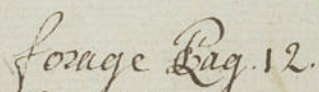 forage Pag. 12.